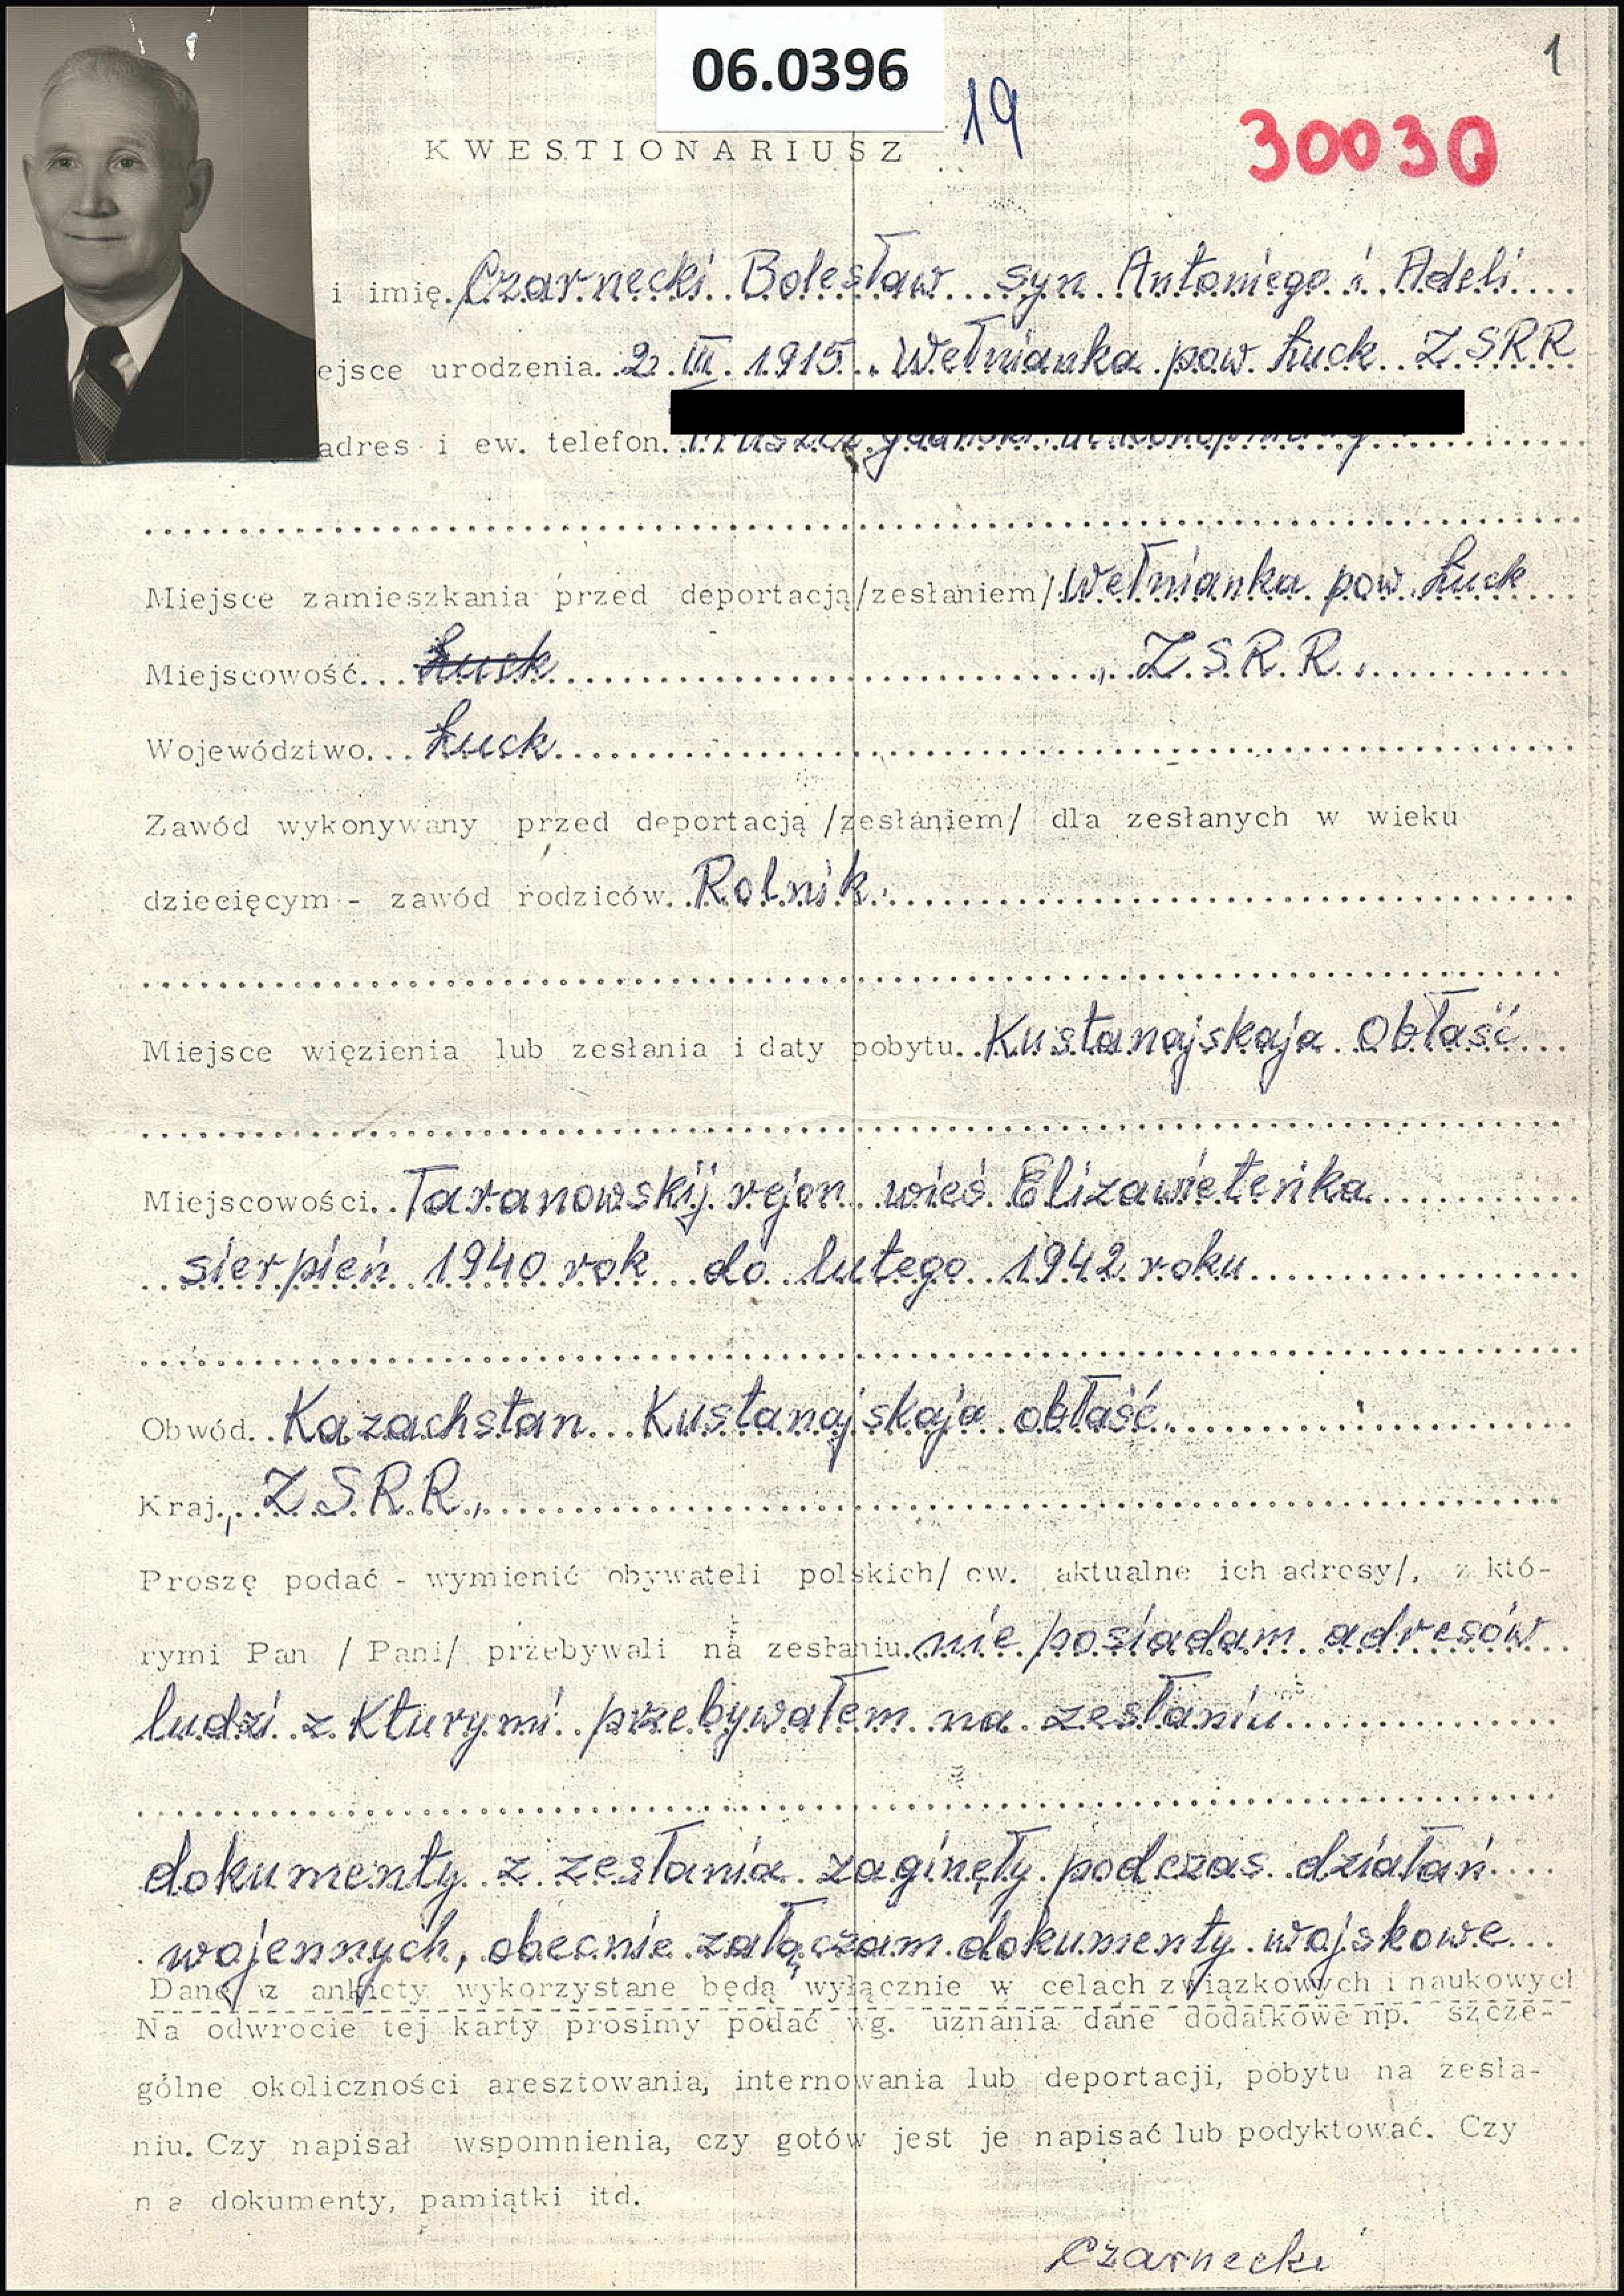 06.0396
1
19
KWESTIONARIUSZ
30030
i imię. Czarnecki Bolesław syn Antoniego i Adeli
ejsce urodzenia. 2 III 1915. Wełnianka pow. Łuck ZSRR
adres i ew. telefon.
Miejsce zamieszkania przed deportacją/zesłaniem/ Wełnianka pow. Łuck
Miejscowość... Łuck ZSRR.
Województwo... Łuck
Zawód wykonywany przed deportacją /zesłaniem/ dla zesłanych w wieku
dziecięcym - zawód rodziców. Rolnik.
Miejsce więzienia lub zesłania i daty pobytu. Kustanajskaja Obłaść
Miejscowości. Taranowskij rejon wieś Elizawietenka
sierpień 1940 rok do lutego 1942 roku
Obwód. Kazachstan Kustanajskaja obłaść.
Kraj. Z.S.R.R.
Proszę podać - wymienić obywateli polskich/ ew. aktualne ich adresy/, z któ-
rymi Pan / Pani/ przebywali na zesłaniu. nie posiadam adresów
ludzi z kturymi przebywałem na zesłaniu
dokumenty z zesłania zaginęły podczas działań
wojennych, obecnie załączam dokumenty wojskowe
Dane z ankiety wykorzystane będą wyłącznie w celach związkowych i naukowych
Na odwrocie tej karty prosimy podać wg. uznania dane dodatkowe np. szcze-
gólne okoliczności aresztowania, internowania lub deportacji, pobytu na zesła-
niu. Czy napisał wspomnienia, czy gotów jest je napisać lub podyktować. Czy
dokumenty, pamiątki itd.
Czarnecki